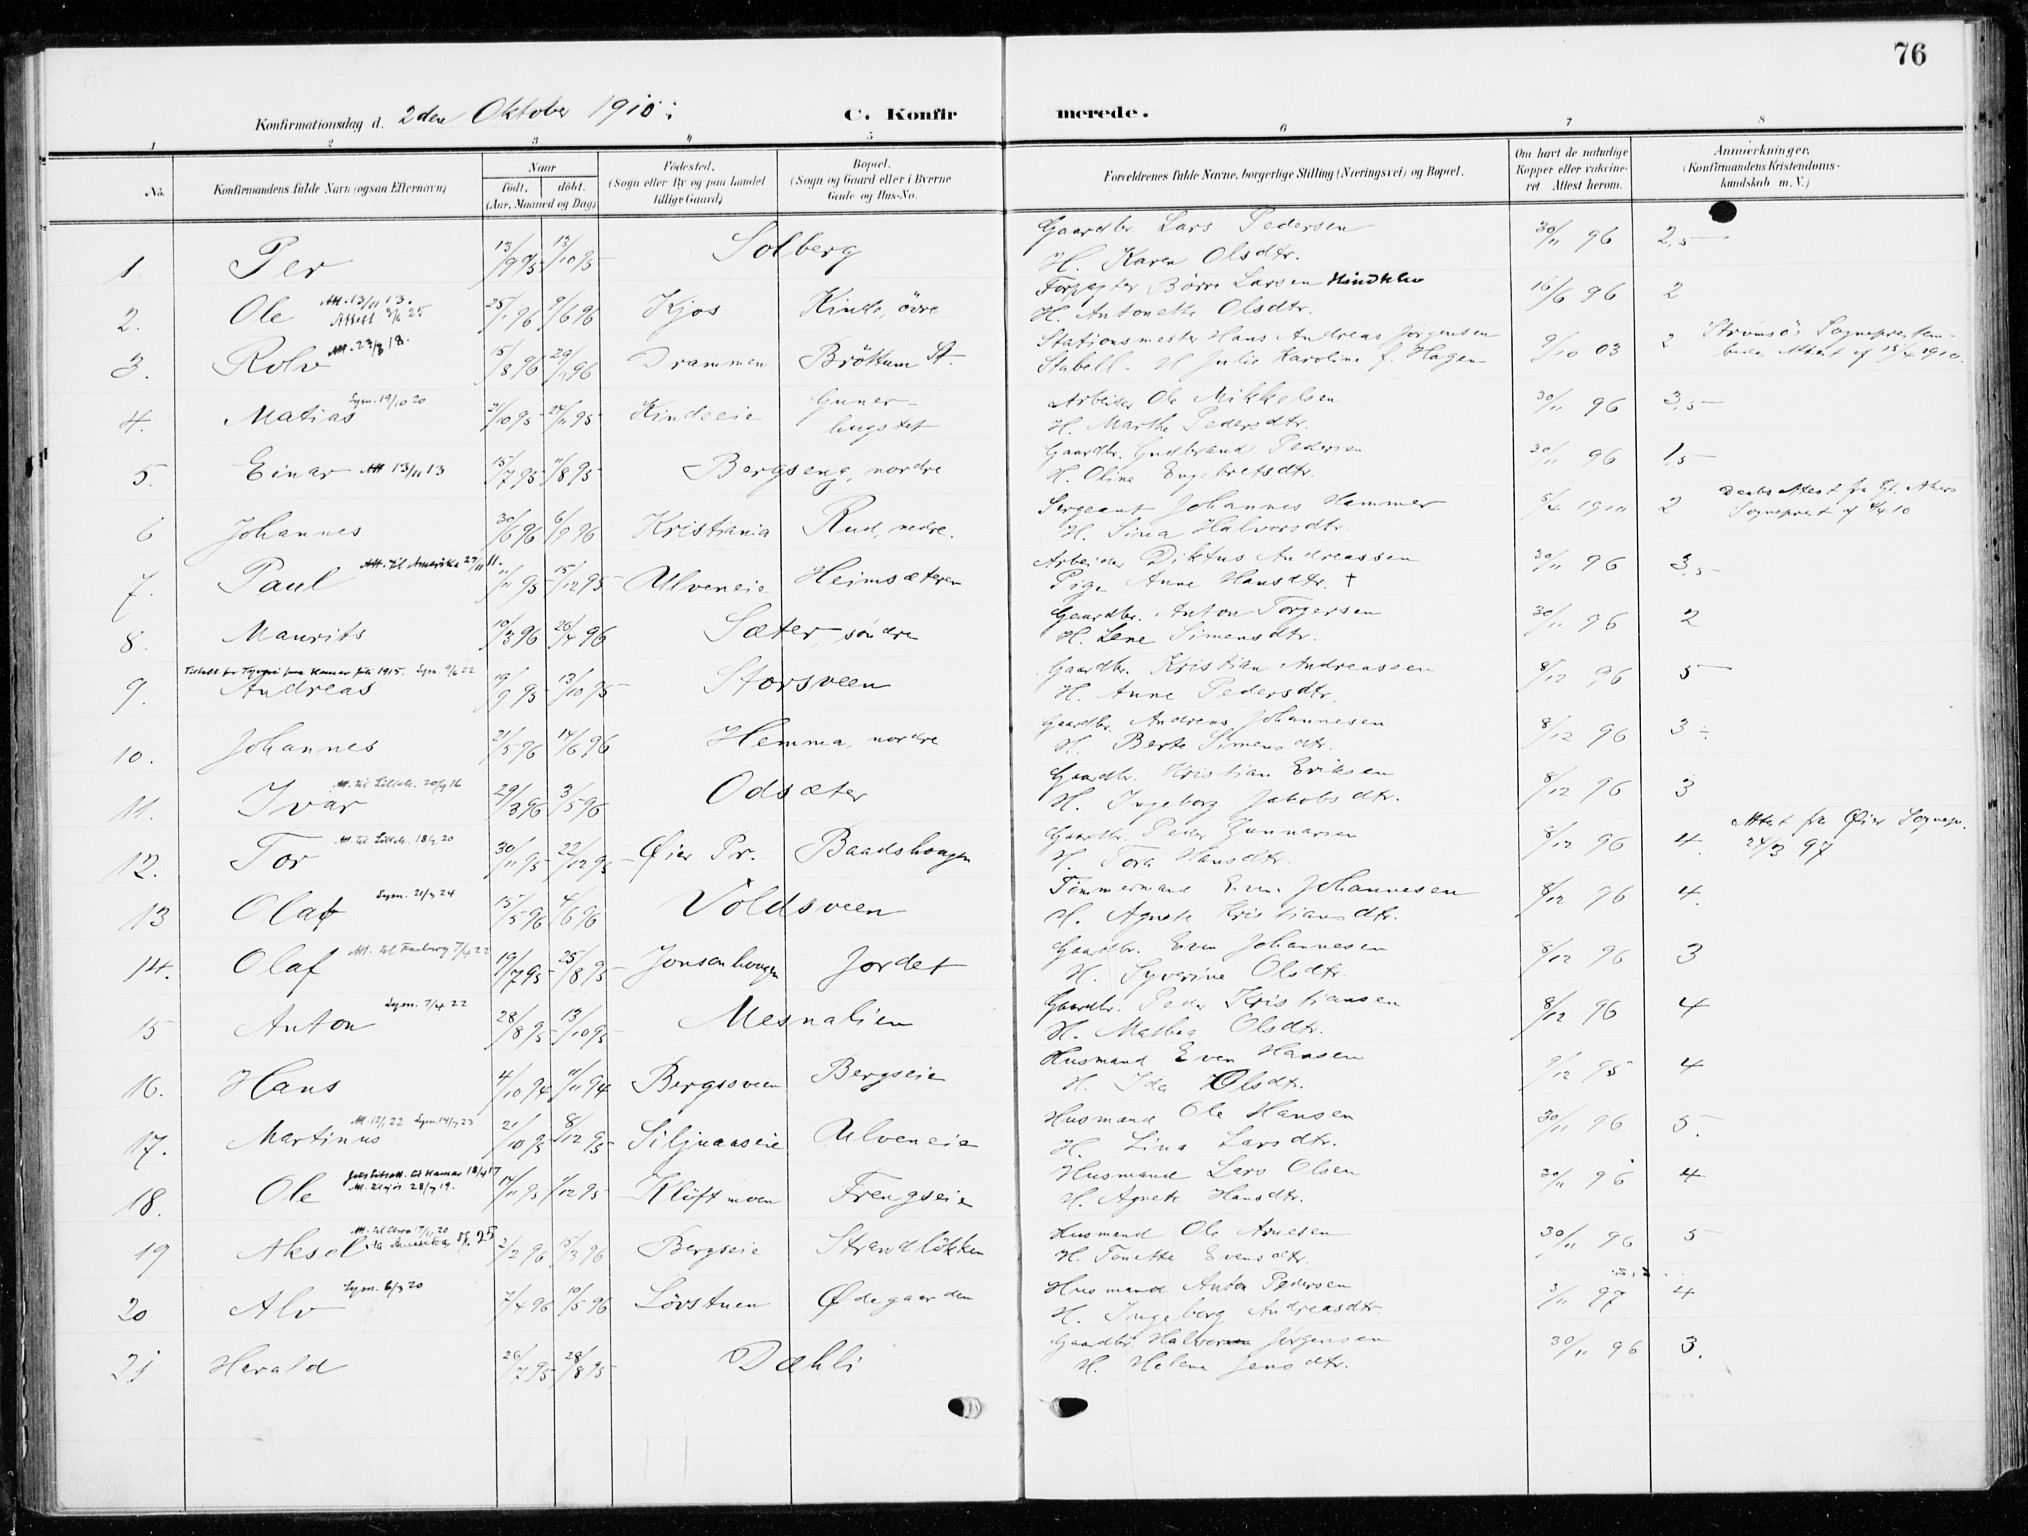 76
Konfirmationsdag d. 2den Oktober 1910. C. Konfirmerede.
1 2 3 4 5 6 7 8
No. Konfirmandens fulde Navn (ogsaa Efternavn) Naar Födt. döbt. (Aar, Maaned og Dag) Födested. (Sogn eller By og paa Landet tillige Gaard) Bopæl. (Sogn og Gaard eller i Byerne Gade og Hus-No. Forældrenes fulde Navne, borgerlige Stilling (Næringsvei) og Bopæl. Om havt de naturlige Kopper eller vaccineret Attest herom. Anmærkninger. (Konfirmandens Kristendomskundskab m. V.)
1. Per 13/9 95 13/10 95 Solberg Gaardbr. Lars Pedersen 30/11 96 2,5
H. Karen Olsdtr.
2. Ole Att. 13/11 13. Attest 3/6 25 25/1 96 9/6 96 Kjos Kinds, övre Forpagter Börre Larsen Kindshlv 16/6 96 2
H. Antonette Olsdtr.
3. Rolv Att. 23/8 18. 15/8 96 29/11 96 Drammen Bröttum St. Stationsmester Hans Andreas Jörgensen 9/10 03 2 Strömsö Sogneprestem-
Stabell. H Julie Karoline f. Hagen Attest af 15/4 1910.
4. Matias Lysn. 19/10 20 21/10 95 24/11 95 Kindseie Guner- Arbeider Ole Mikkelsen 30/11 96 3,5
hugstet H. Marthe Pedersdtr.
5. Einar Att 13/11 13 15/7 95 11/8 95 Bergseng, nordre Gaardbr. Gudbrand Pedersen 30/11 96 1,5
H. Oline Engebretsdtr.
6 Johannes 30/6 96 6/9 96 Kristiania Rud, nedre. Sergeant Johannes Hammer 5/4 1910 2 Daabs Attest fra Gl. Akers
H. Sina Halvorsdtr. Sogneprest af 4/4 10
7. Paul Att. til Amerika 27/11 11. 11/11 95 15/12 95 Ulveneie Heimsæteren Arbeider Diktus Andreassen 30/11 96 3,5
Pige Anne Hansdtr. †
8. Maurits 10/3 96 26/4 96 Sæter, söndre Gaardbr. Anton Torgersen 30/11 96 2
H. Lene Simensdtr.
9. Tiltalt for Tyveri fra Hamar juli 1915. Lysn. 9/6 22
Andreas 19/9 95 13/10 95 Storsveen Gaardbr. Kristian Andreassen 8/12 96 5
H. Anne Pedersdtr.
10. Johannes 21/5 96 14/6 96 Hemma, nordre Gaardbr. Andreas Johannesen 8/12 96 3
H. Berte Simensdtr.
11. Ivar Att. til Lilleh. 20/9 16 29/3 96 3/5 96 Odsæter Gaardbr. Kristian Eriksen 8/12 96 3
H. Ingeborg Jakobsdtr.
12. Tor Att. til Lilleh. 18/2 20 30/11 95 22/12 95 Øier Pr. Baadshaugen Gaardbr. Peder Gunnarsen 8/12 96 4. Attest fra Øier Sognepr.
H. Tora Hansdtr. 24/3 97
13 Olaf Lysn. 21/3 24 15/5 96 4/6 96 Voldsveen Tömmermand Even Johannesen 8/12 96 4.
H. Agnete Kristiansdtr.
14. Olaf Att. til Faaberg 7/4 22 19/7 95 25/8 95 Jonsenhaugen Jordet Gaardbr. Even Johannesen 8/12 96 3
H. Syverine Olsdtr.
15 Anton Lysn. 7/4 22 28/8 95 13/10 95 Mesnalien Gaardbr. Peder Kristiansen 8/12 96 4
H. Mathea Olsdtr.
16. Hans 4/10 94 11/11 94 Bergssveen Bergseie Husmand Even Hansen 9/12 95 4
H. Ida Olsdtr.
17. Martinus Att. 12/1 22 Lysn. 14/7 23 21/10 95 8/12 95 Siljuaaseie Ulveneie Husmand Ole Hansen 30/11 96 5.
H. Lina Larsdtr.
18. Ole til Hamar 18/4 17 17/11 95 1/12 95 Klöftmoen Frengseie Husmand Lars Olsen 30/11 96 4
28/7 19. H. Agnete Hansdtr.
19 Aksel til Amerika 25 2/2 96 15/3 96 Bergseie Strandlökken Husmand Ole Arnesen 30/11 96 5
H. Tonette Evensdtr.
20 Alv Lysn. 6/3 20 7/4 96 10/5 96 Lövstuen Ødegaarden Husmand Anton Pedersen 3/11 97 4
H. Ingeborg Andreasdtr.
21 Harald 26/7 95 28/8 95 Dæhli Gaardbr. Halvor Jörgensen 30/11 96 3.
H. Helene Jensdtr.